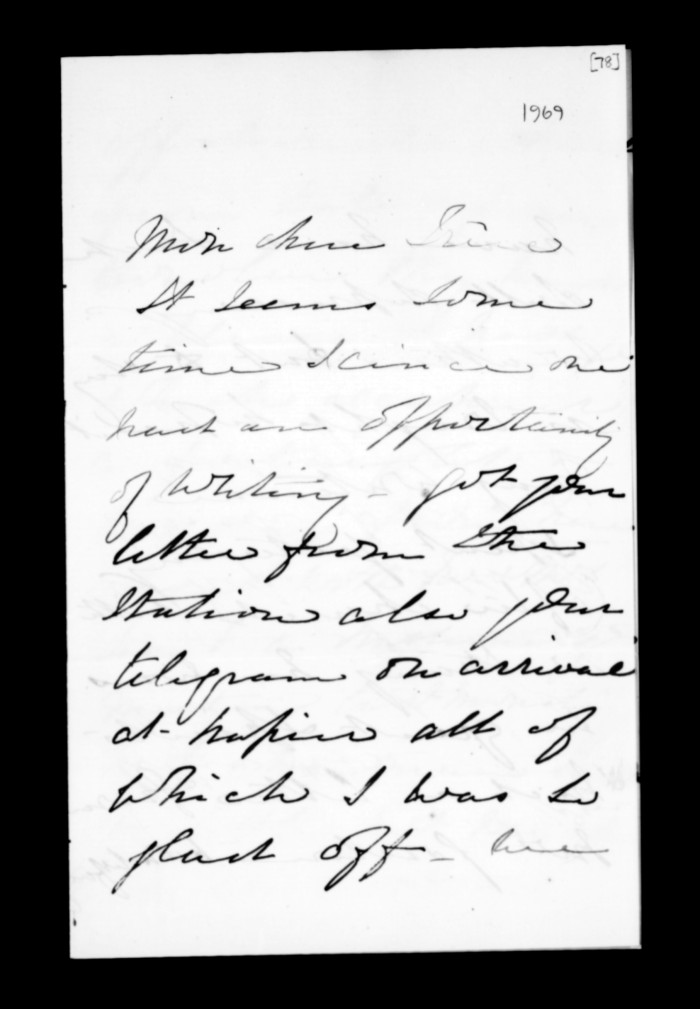 [78]
1969
Mon chere
It seems some
time scince one
had an opportunity
of writing - got your
letter from the
Station also your
telegram on arrival
at Napier all of
which I was so
glad off -